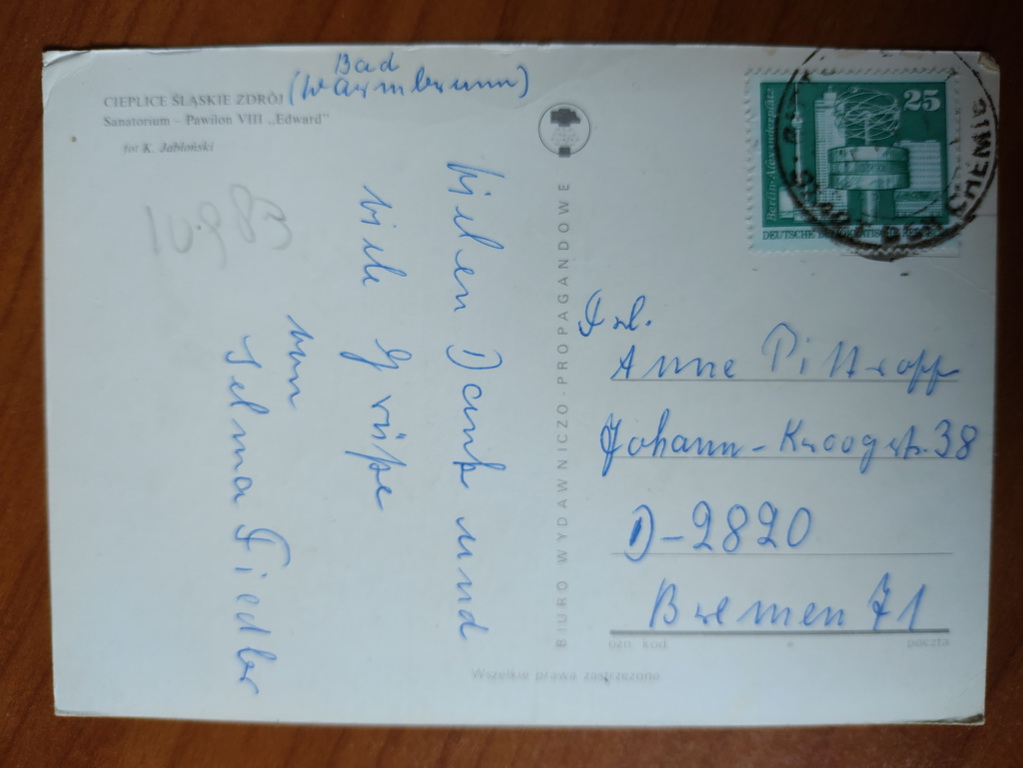 CIEPLICE ŚLĄSKIE ZDRÓJ (Bad Warmbrunn)
Sanatorium – Pawilon VIII „Edward”
fot K. Jabłoński
10983
Vielen Dank und
viele Grüße
von
Selma Fiedler
BIURO WYDAWNICZO - PROPAGANDOWE
25
Berlin-Alexanderplatz
DEUTSCHE DEMOKRATISCHE
CHEMIE
Frl.
Anne Pittroff
Johann-Kroogstr. 38
D-2820
Bremen 71
ozn. kod
poczta
Wszelkie prawa zastrzeżone